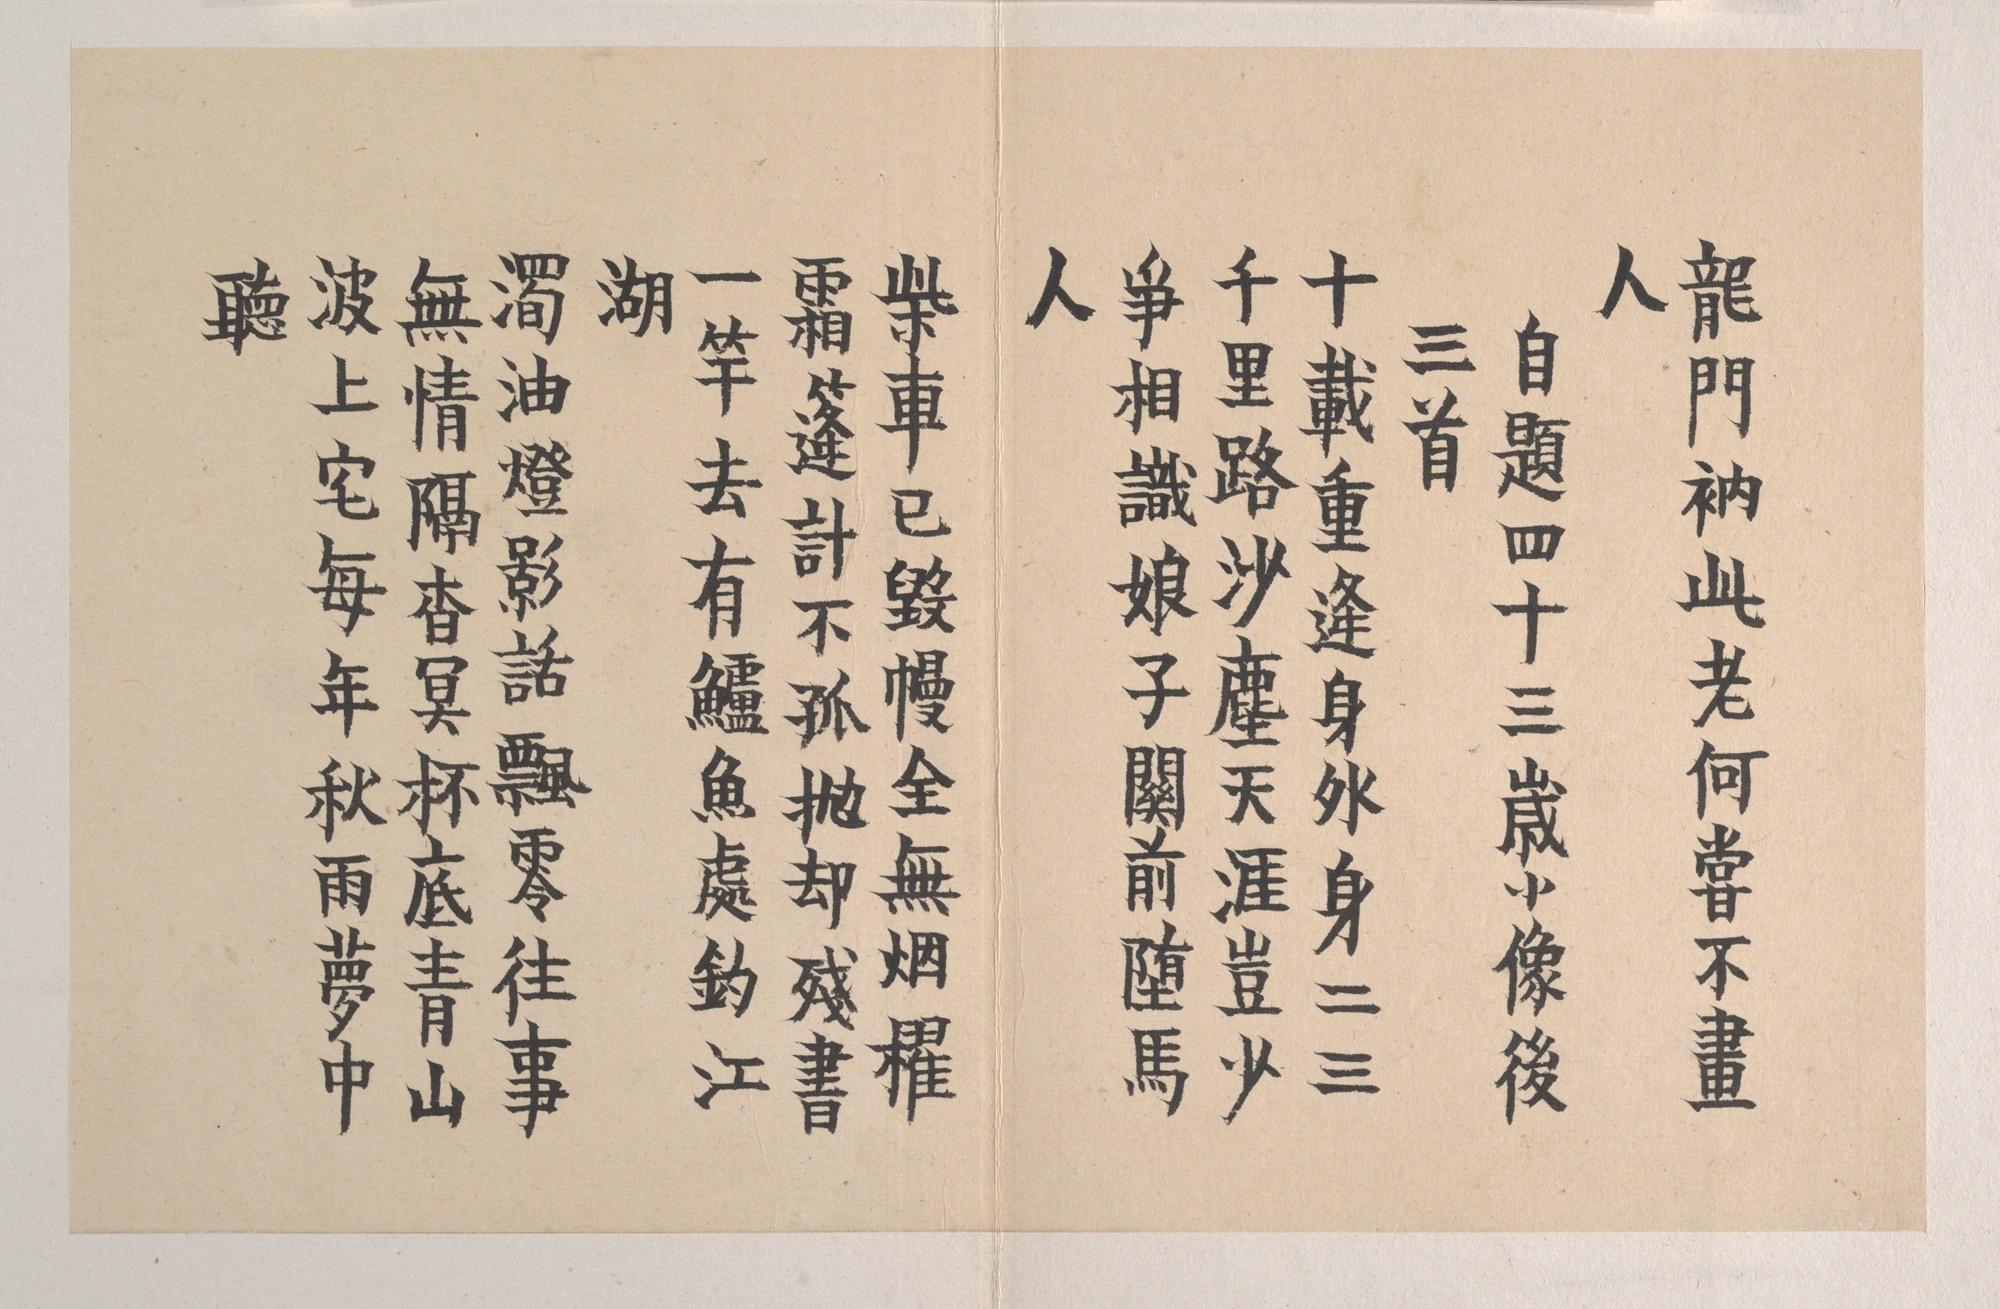 龍門衲此老何嘗不畫
人
自題四十三歲小像後
三首
十載重逢身外身二三
千里路沙塵天涯豈少
爭相識娘子關前墮馬
人
柴車已毀幔全無烟櫂
霜篷計不孤拋却殘書
一竿去有鱸魚處釣江
湖
濁油燈影話飄零往事
無情隔杳冥杯底青山
波上宅每年秋雨夢中
聽